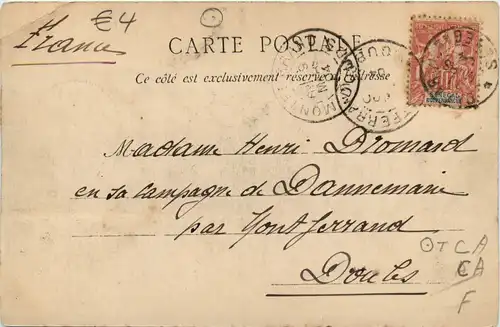 €4
France
CARTE POSTALE
Ce côté est exclusivement réservé à l'adresse
Madame Henri Dromard
en sa campagne de Dannemarie
par Montferrand
Doubs
OT CA
CA
F